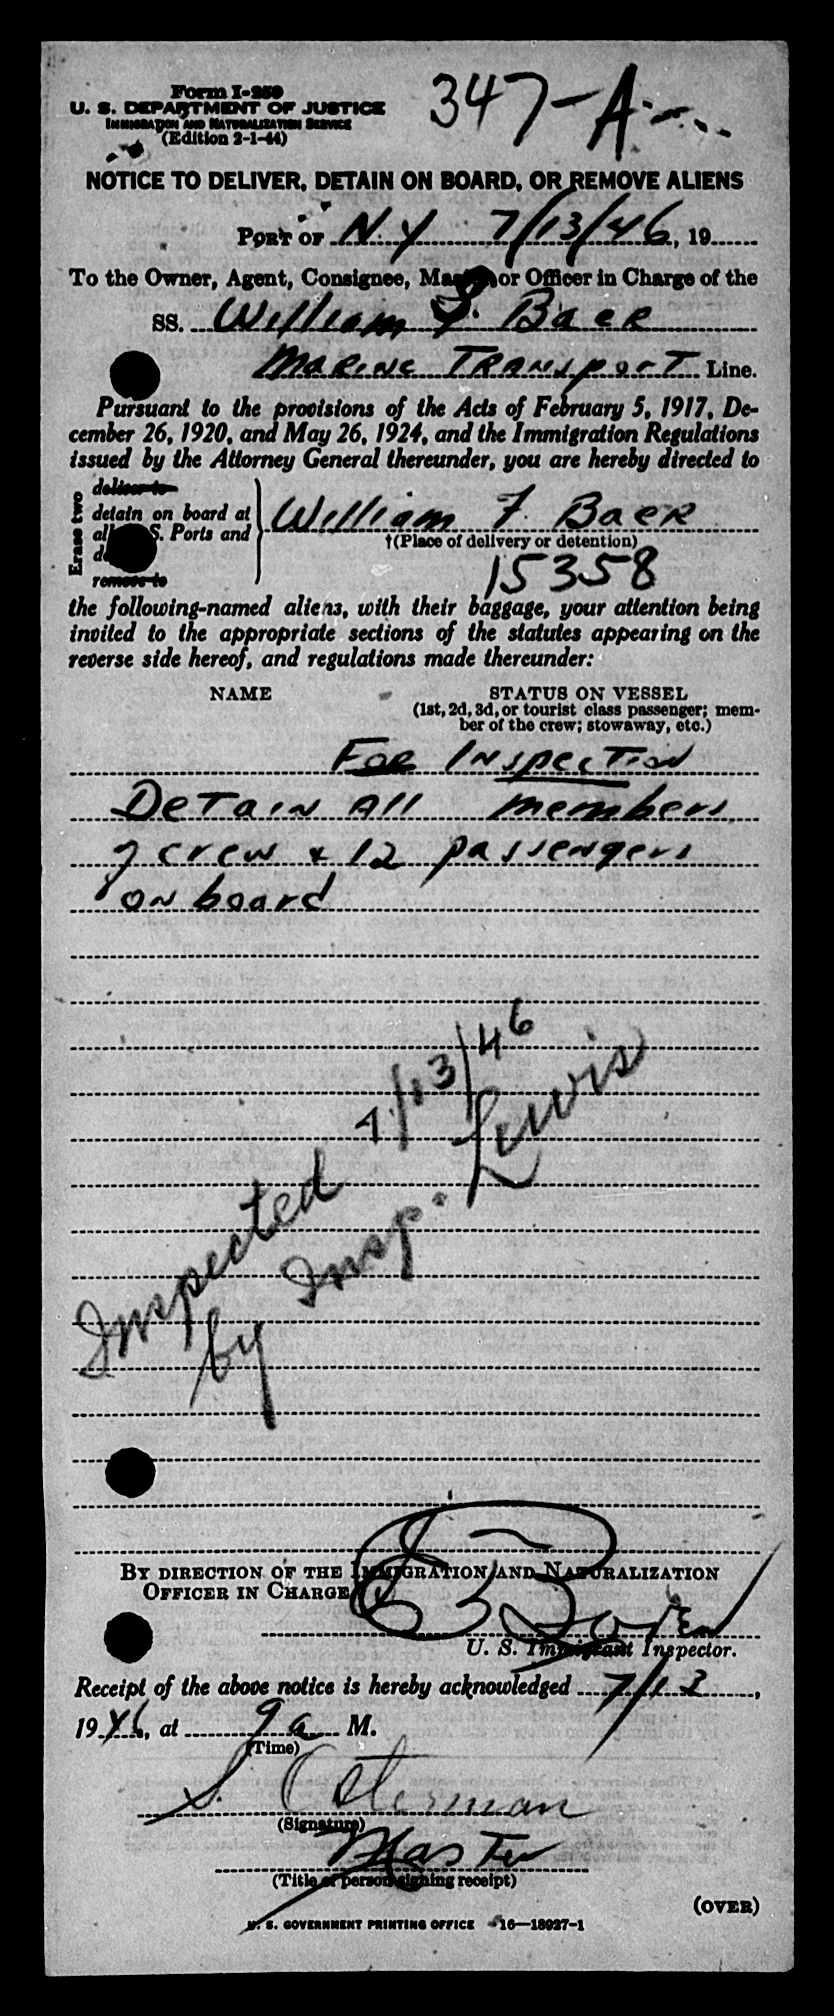 Form I-259
U. S. DEPARTMENT OF JUSTICE
IMMIGRATION AND NATURALIZATION SERVICE
(Edition 2-1-44)
347-A
NOTICE TO DELIVER, DETAIN ON BOARD, OR REMOVE ALIENS
PORT OF N.Y 7/13/46, 19
To the Owner, Agent, Consignee, Master, or Officer in Charge of the
SS. William F. Baer
Marine Transport Line.
Pursuant to the provisions of the Acts of February 5, 1917, De-
cember 26, 1920, and May 26, 1924, and the Immigration Regulations
issued by the Attorney General thereunder, you are hereby directed to
Erase two
deliver to
detain on board at
all U. S. Ports and
remove to
William F. Baer
†(Place of delivery or detention)
15358
the following-named aliens, with their baggage, your attention being
invited to the appropriate sections of the statutes appearing on the
reverse side hereof, and regulations made thereunder:
NAME STATUS ON VESSEL
(1st, 2d, 3d, or tourist class passenger; mem-
ber of the crew; stowaway, etc.)
For Inspection
Detain All members
of crew & 12 passengers
on board
Inspected 7/13/46
by Insp. Lewis
BY DIRECTION OF THE IMMIGRATION AND NATURALIZATION
OFFICER IN CHARGE
U. S. Immigrant Inspector.
Receipt of the above notice is hereby acknowledged 7/13,
1946, at 9 a M.
(Time)
S. Osterman
(Signature)
Master
(Title of person signing receipt)
(OVER)
U. S. GOVERNMENT PRINTING OFFICE 16—18927-1